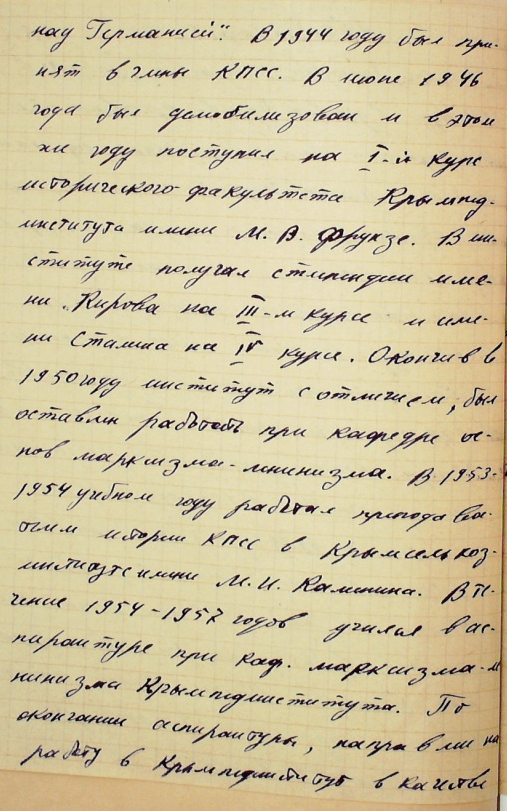 над Германией". В 1944 году был при-
нят в члены КПСС. В июне 1946
года был демобилизован и в этом
же году поступил на I-й курс
исторического факультета Крымпед-
института имени М. В. Фрунзе. В ин-
ституте получал стипендии име-
ни Кирова на III-м курсе и име-
ни Сталина на IV курсе. Окончив в
1950 году институт с отличием, был
оставлен работать при кафедре ос-
нов марксизма-ленинизма. В 1953-
1954 учебном году работал преподава-
телем истории КПСС в Крымсельхоз-
институте имени М. И. Калинина. В те-
чение 1954-1957 годов учился в ас-
пирантуре при каф. марксизма-ле
нинизма Крымпединститута. По
окончании аспирантуры, направлен на
работу в Крымпединститут в качестве